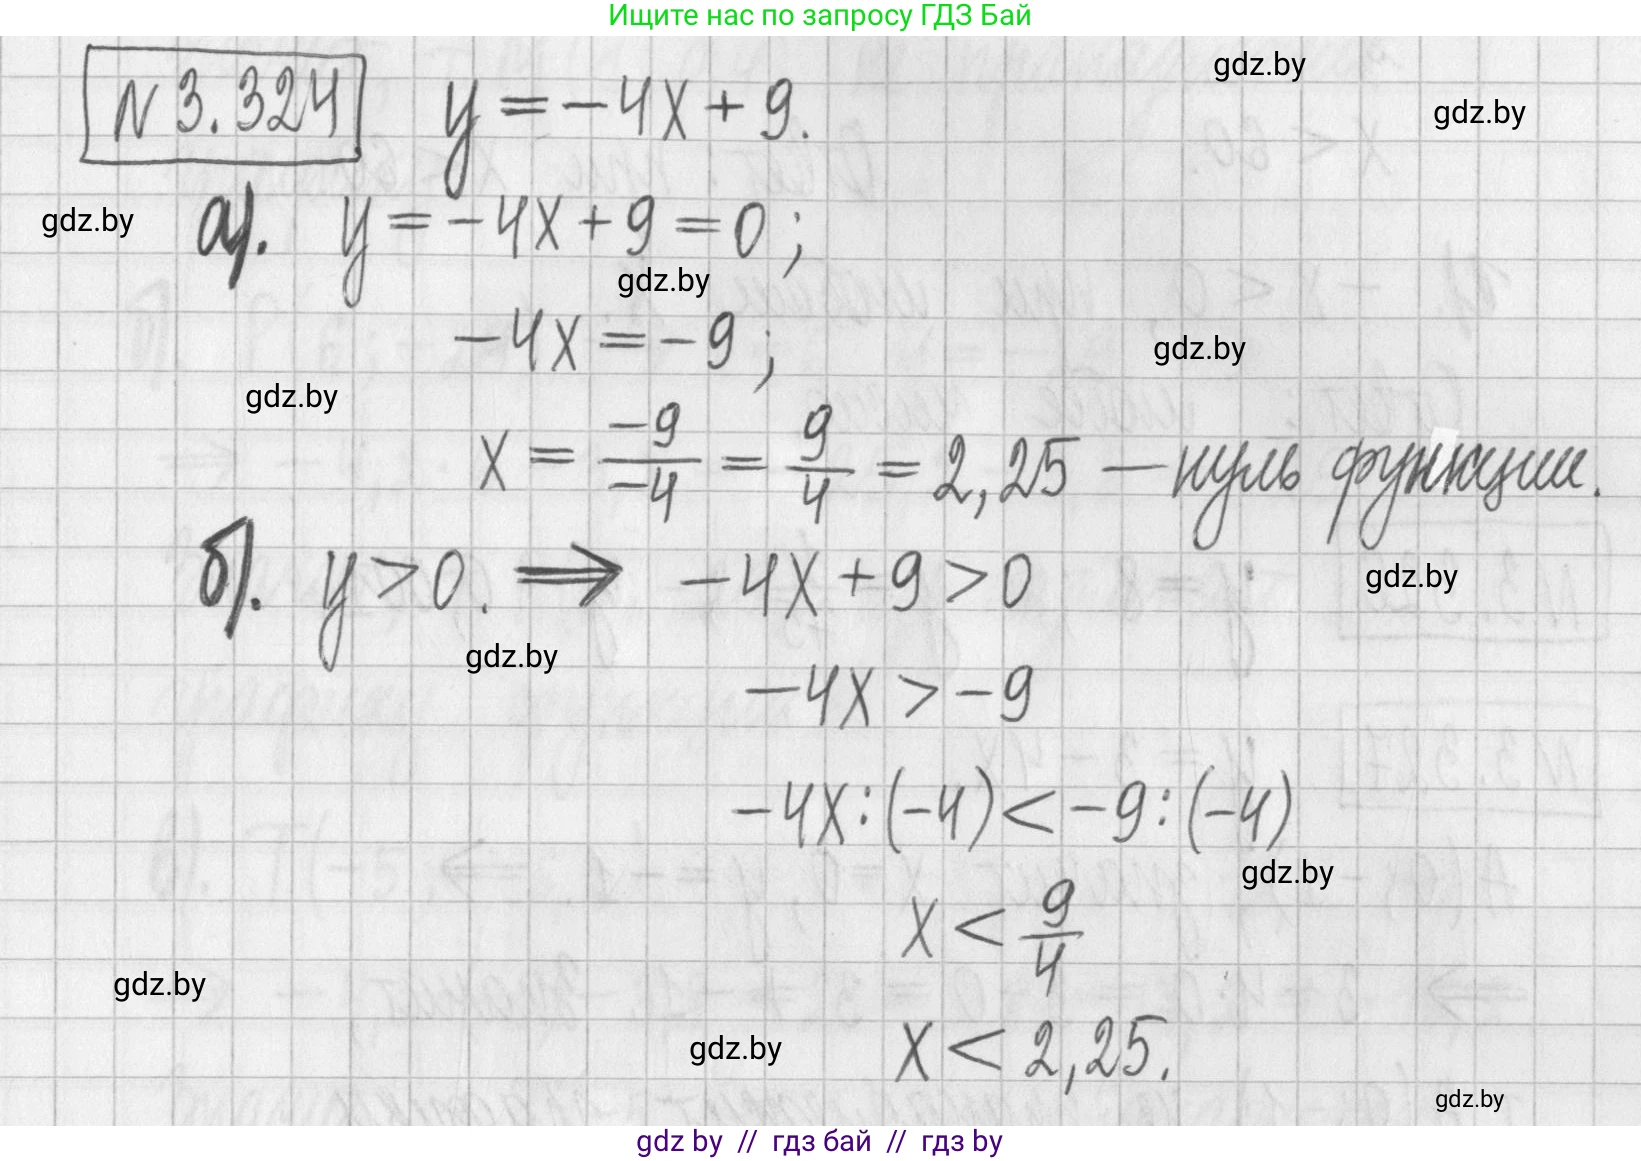 Ищите нас по запросу ГДЗ Бай
N 3.324 y = -4x + 9.
gdz.by
gdz.by
а). y = -4x + 9 = 0;
gdz.by
gdz.by
-4x = -9;
gdz.by
gdz.by
x = -9/-4 = 9/4 = 2,25 — нуль функции.
б). y > 0. ⟹ -4x + 9 > 0
gdz.by
gdz.by
-4x > -9
-4x : (-4) < -9 : (-4)
gdz.by
x < 9/4
gdz.by
x < 2,25.
gdz.by
gdz.by
gdz by // гдз бай // гдз by